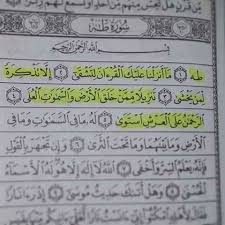 مِّن قَرْنٍ هَلْ تُحِسُّ مِنْهُم مِّنْ أَحَدٍ أَوْ تَسْمَعُ لَهُمْ رِكْزًا
سُورَةُ طه
بِسْمِ اللَّهِ الرَّحْمَٰنِ الرَّحِيمِ
طه ١ مَا أَنزَلْنَا عَلَيْكَ الْقُرْءَانَ لِتَشْقَىٰ ٢ إِلَّا تَذْكِرَةً
لِّمَن يَخْشَىٰ ٣ تَنزِيلًا مِّمَّنْ خَلَقَ الْأَرْضَ وَالسَّمَٰوَٰتِ الْعُلَى ٤
الرَّحْمَٰنُ عَلَى الْعَرْشِ اسْتَوَىٰ ٥ لَهُ مَا فِي السَّمَٰوَٰتِ وَمَا فِي
الْأَرْضِ وَمَا بَيْنَهُمَا وَمَا تَحْتَ الثَّرَىٰ ٦ وَإِن تَجْهَرْ بِالْقَوْلِ
فَإِنَّهُ يَعْلَمُ السِّرَّ وَأَخْفَى ٧ اللَّهُ لَا إِلَٰهَ إِلَّا هُوَ لَهُ الْأَسْمَاءُ
الْحُسْنَىٰ ٨ وَهَلْ أَتَىٰكَ حَدِيثُ مُوسَىٰ ٩ إِذْ رَءَا نَارًا